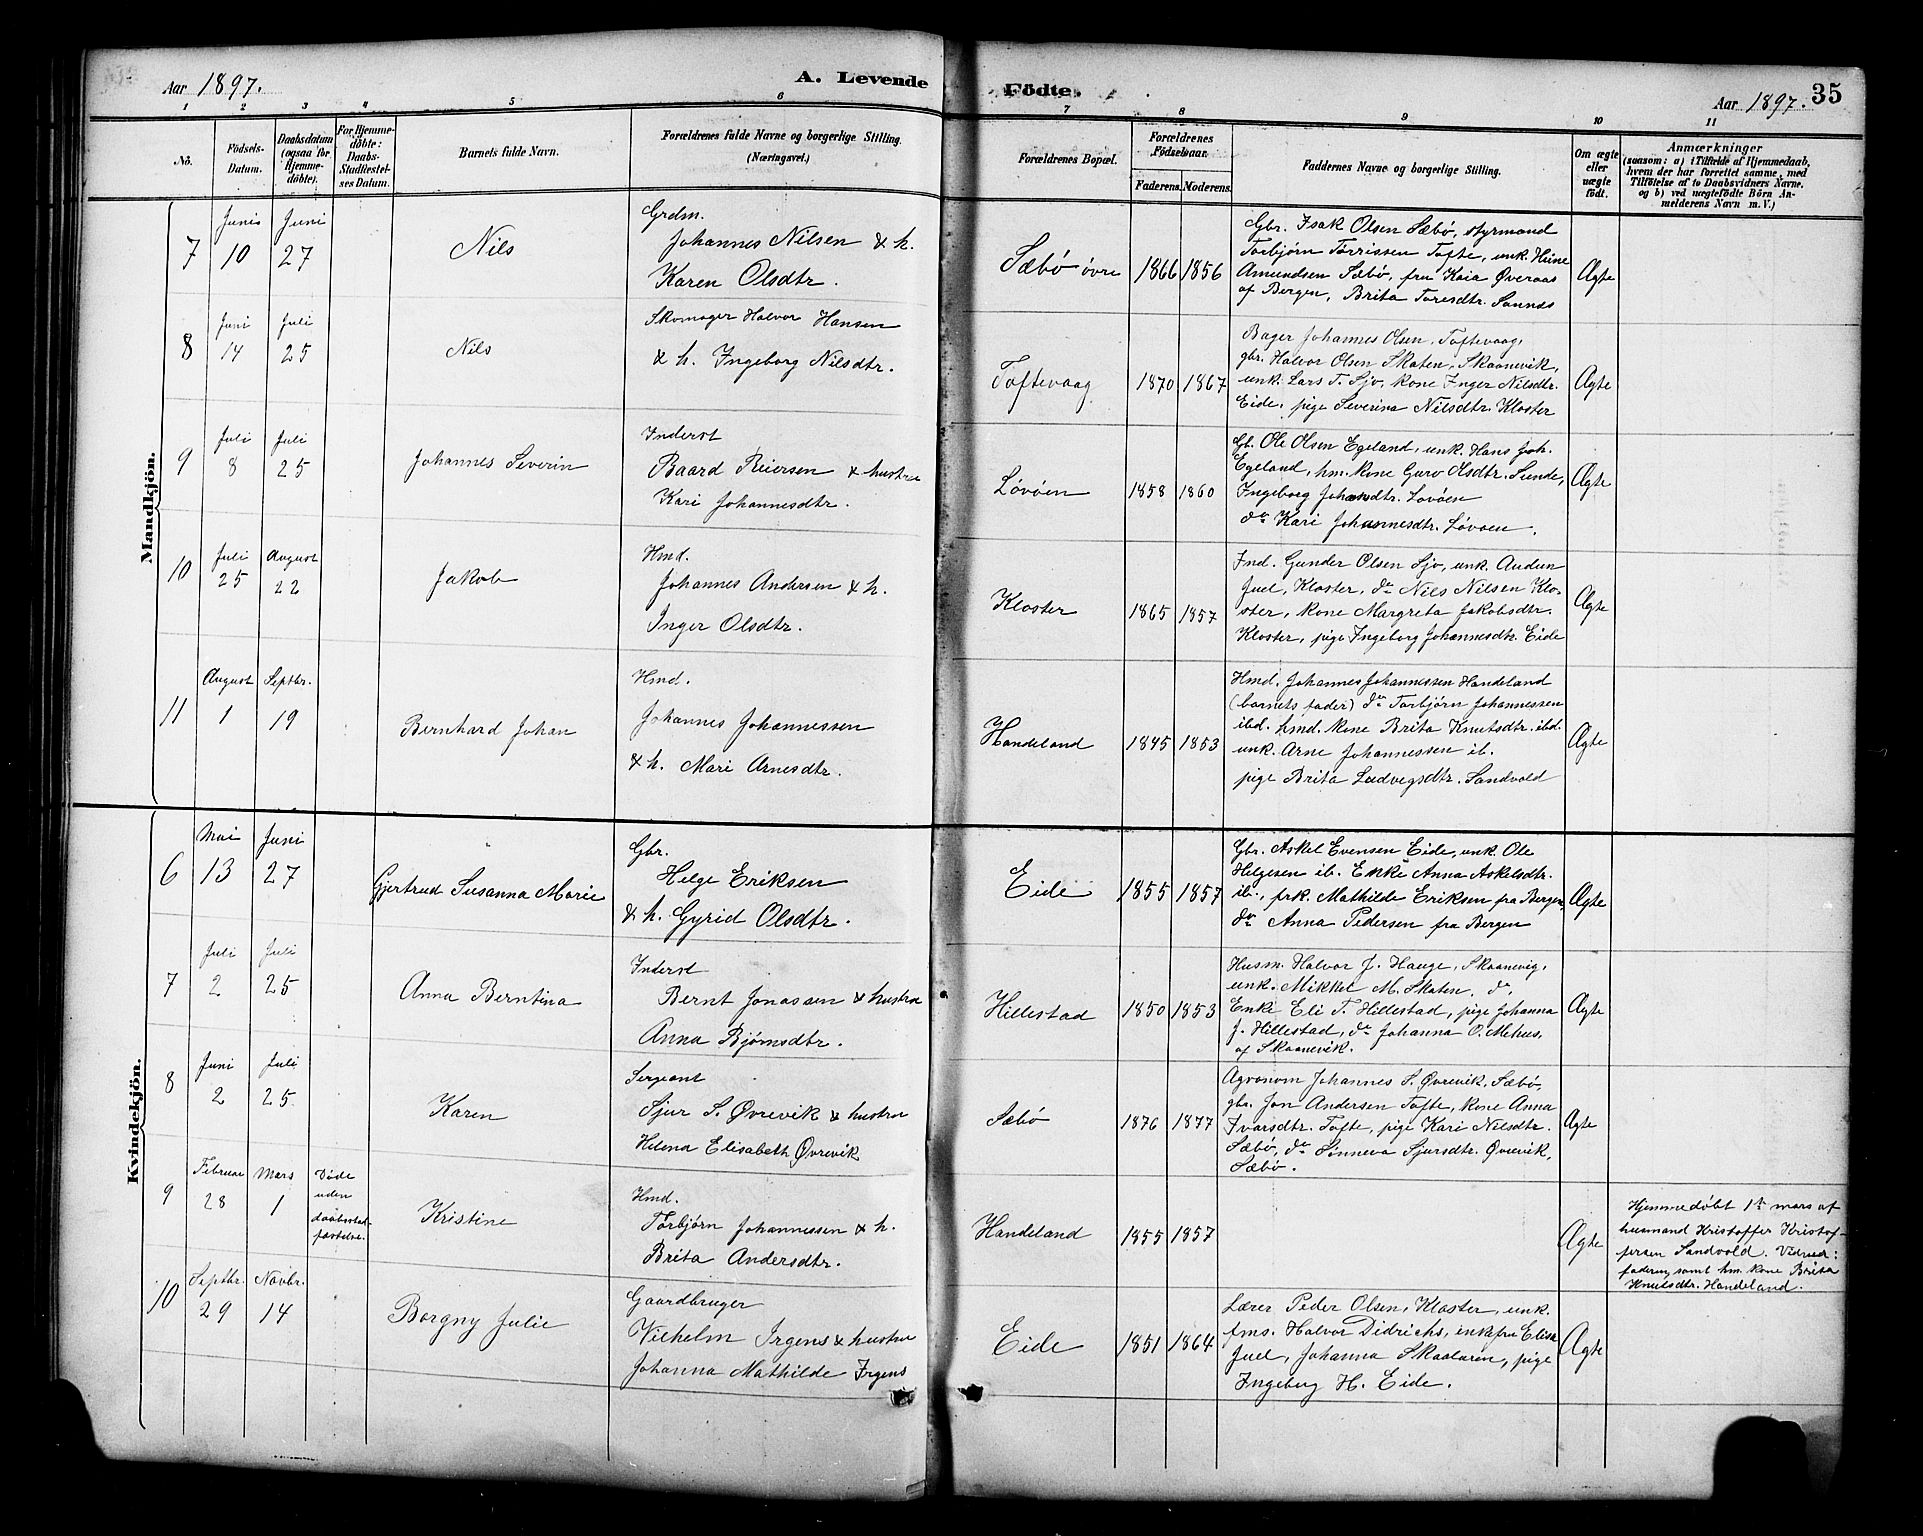 Aar 1897.
A. Levende
Födte.
Aar 1897. 35
1 2 3 4 5 6 7 8 9 10 11
No.
Födsels-
Datum.
Daabsdatum
(ogsaa for
Hjemme-
döbte).
For Hjemme-
döbte:
Daabs-
Stadfæstel-
ses Datum.
Barnets fulde Navn.
Forældrenes fulde Navne og borgerlige Stilling.
(Næringsvei.)
Forældrenes Bopæl.
Forældrenes
Födselsaar.
Faderens. Moderens.
Faddernes Navne og borgerlige Stilling.
Om ægte
eller
uægte
födt.
Anmærkninger
(saasom: a) i Tilfælde af Hjemmedaab,
hvem der har forrettet samme, med
Tilföielse af to Daabsvidners Navne,
og b) ved uægtefödte Börn An-
melderens Navn m. V.)
Mandkjön.
7
Juni
10
Juni
27
Nils
Grdm.
Johannes Nilsen & h.
Karen Olsdtr.
Sæbø øvre
1866 1856
Gbr. Isak Olsen Sæbø, styrmand
Torbjørn Torrissen Tofte, unk. Heine
Amundsen Sæbø, fru Kaia Øveraas
af Bergen, Brita Toresdtr. Sannes
Ægte
8
Juni
14
Juli
25
Nils
Skomager Halvor Hansen
& h. Ingeborg Nilsdtr.
Toftevaag
1870 1867
Bager Johannes Olsen, Toftevaag,
gbr. Halvor Olsen Skaten, Skaanevik,
unk. Lars T. Sjo, kone Inger Nilsdtr.
Eide, pige Severina Nilsdtr. Kloster
Ægte
9
Juli
8
Juli
25
Johannes Severin
Inderst
Baard Reiersen & hustru
Kari Johannesdtr.
Løvøen
1858 1860
Gb. Ole Olsen Egeland, unk. Hans Joh.
Egeland, hm. kone Guro Olsdtr. Sunde,
Ingeborg Johansdtr. Løvøen
do Kari Johannesdtr. Løvøen.
Ægte
10
Juli
25
August
22
Jakob
Hmd.
Johannes Andersen & h.
Inger Olsdtr.
Kloster
1865 1857
Ind. Gunder Olsen Sjo, unk. Audun
Juel, Kloster, do Nils Nilsen Klo-
ster, kone Margreta Jakobsdtr.
Kloster, pige Ingeborg Johannesdtr. Eide
Ægte
11
August
1
Septbr.
19
Bernhard Johan
Hmd.
Johannes Johannessen
& h. Mari Arnesdtr.
Handeland
1845 1853
Hmd. Johannes Johannessen Handeland
(barnets fader) do Torbjørn Johannessen
ibd. hmd. kone Brita Knutsdtr. ibd.
unk. Arne Johannessen ib.
pige Brita Ludvigsdtr. Sandvold
Ægte
Kvindekjön.
6
Mai
13
Juni
27
Gjertrud Susanna Marie
Gbr.
Helge Eriksen
& h. Gyrid Olsdtr.
Eide
1855 1857
Gbr. Askel Evensen Eide, unk. Ole
Helgesen ib. Enke Anna Askelsdtr.
ib., frk. Mathilde Eriksen fra Bergen,
do Anna Pedersen fra Bergen
Ægte
7
Juli
2
Juli
25
Anna Berntina
Inderst
Bernt Jonassen & hustru
Anna Bjørnsdtr.
Hillestad
1850 1853
Husm. Halvor J. Hauge, Skaanevig,
unk. Mikkel M. Skaten, do,
Enke Eli T. Hillestad, pige Johanna
J. Hillestad, do Johanna O. Mehus,
af Skaanevik.
Ægte
8
Juni
2
Juli
25
Karen
Sergeant
Sjur S. Øvrevik & hustru
Helena Elisabeth Øvrevik
Sæbø
1876 1877
Agronom Johannes S. Øvrevik, Sæbø,
gbr. Jon Andersen Tofte, kone Anna
Ivarsdtr. Tofte, pige Kari Nilsdtr.
Sæbø, do Sønneva Sjursdtr. Øvrevik,
Sæbø.
Ægte
9
Februar
28
Mars
1
Døde
uden
daabsstad-
fæstelse.
Kristine
Hmd.
Torbjørn Johannessen & h.
Brita Andersdtr.
Handeland
1855 1857
Ægte
Hjemmedøbt 1ste mars af
husmand Kristoffer Kristof-
fersen Sandvold. Vidner:
faderen, samt hm. kone Brita
Knutsdtr. Handeland.
10
Septbr.
29
Novbr.
14
Borgny Julie
Gaardbruger
Vilhelm Irgens & hustru
Johanna Mathilde Irgens
Eide
1851 1864
Lærer Peder Olsen, Kloster, unk.
fms. Halvor Didrichs, enkefru Elisa
Juel, Johanna Skaaluren, pige
Ingeborg H. Eide.
Ægte